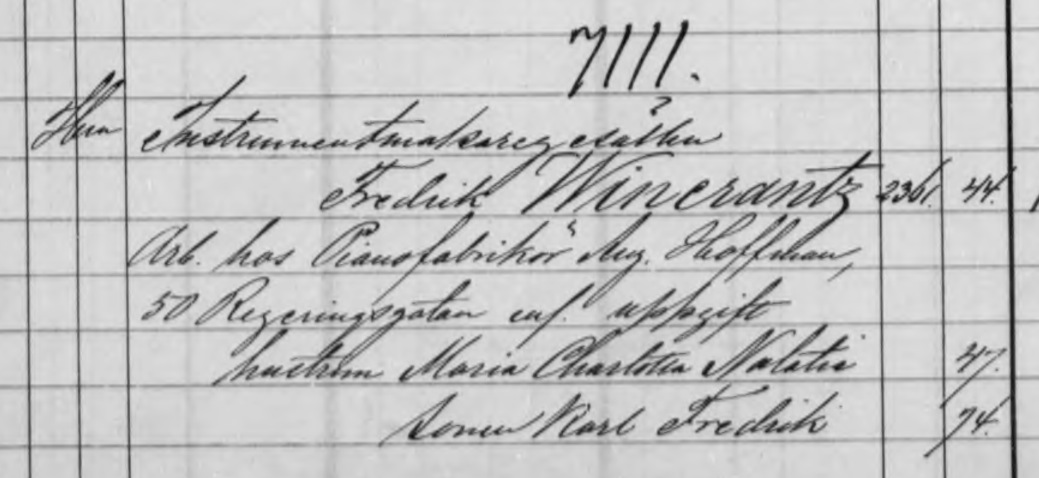 7111.
Hrn Instrumentmakaregesällen
Fredrik Wincrantz 2361. 44.
Arb. hos Pianofabrikör Aug. Hoffman,
50 Regeringsgatan enl. uppgift
hustrun Maria Charlotta Natalia 47.
sonen Karl Fredrik 74.